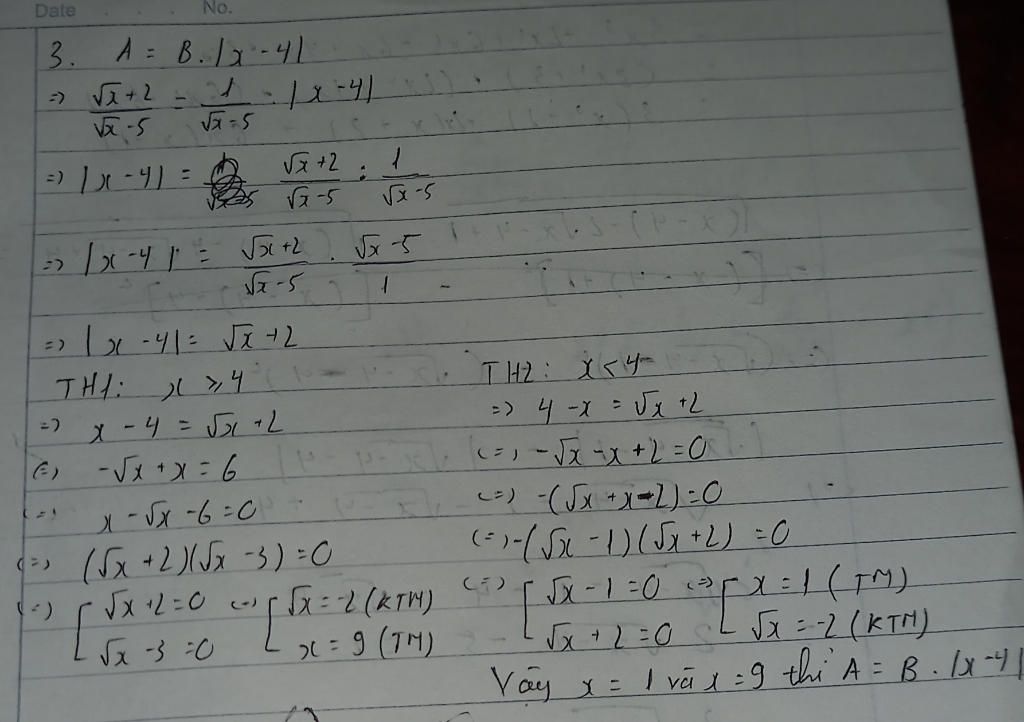 Date No.
3. A = B . |x - 4|
=> (√x + 2)/(√x - 5) = 1/(√x - 5) . |x - 4|
=> |x - 4| = (√x + 2)/(√x - 5) : 1/(√x - 5)
=> |x - 4| = (√x + 2)/(√x - 5) . (√x - 5)/1
=> |x - 4| = √x + 2
TH1: x ⩾ 4
=> x - 4 = √x + 2
(=) -√x + x = 6
(=) x - √x - 6 = 0
(=) (√x + 2)(√x - 3) = 0
(=) [ √x + 2 = 0 (=) [ √x = -2 (KTM)
√x - 3 = 0 x = 9 (TM)
TH2: x < 4
=> 4 - x = √x + 2
(=) -√x - x + 2 = 0
(=) -(√x + x - 2) = 0
(=) -(√x - 1)(√x + 2) = 0
(=) [ √x - 1 = 0 (=) [ x = 1 (TM)
√x + 2 = 0 √x = -2 (KTM)
Vậy x = 1 và x = 9 thì A = B . |x - 4|